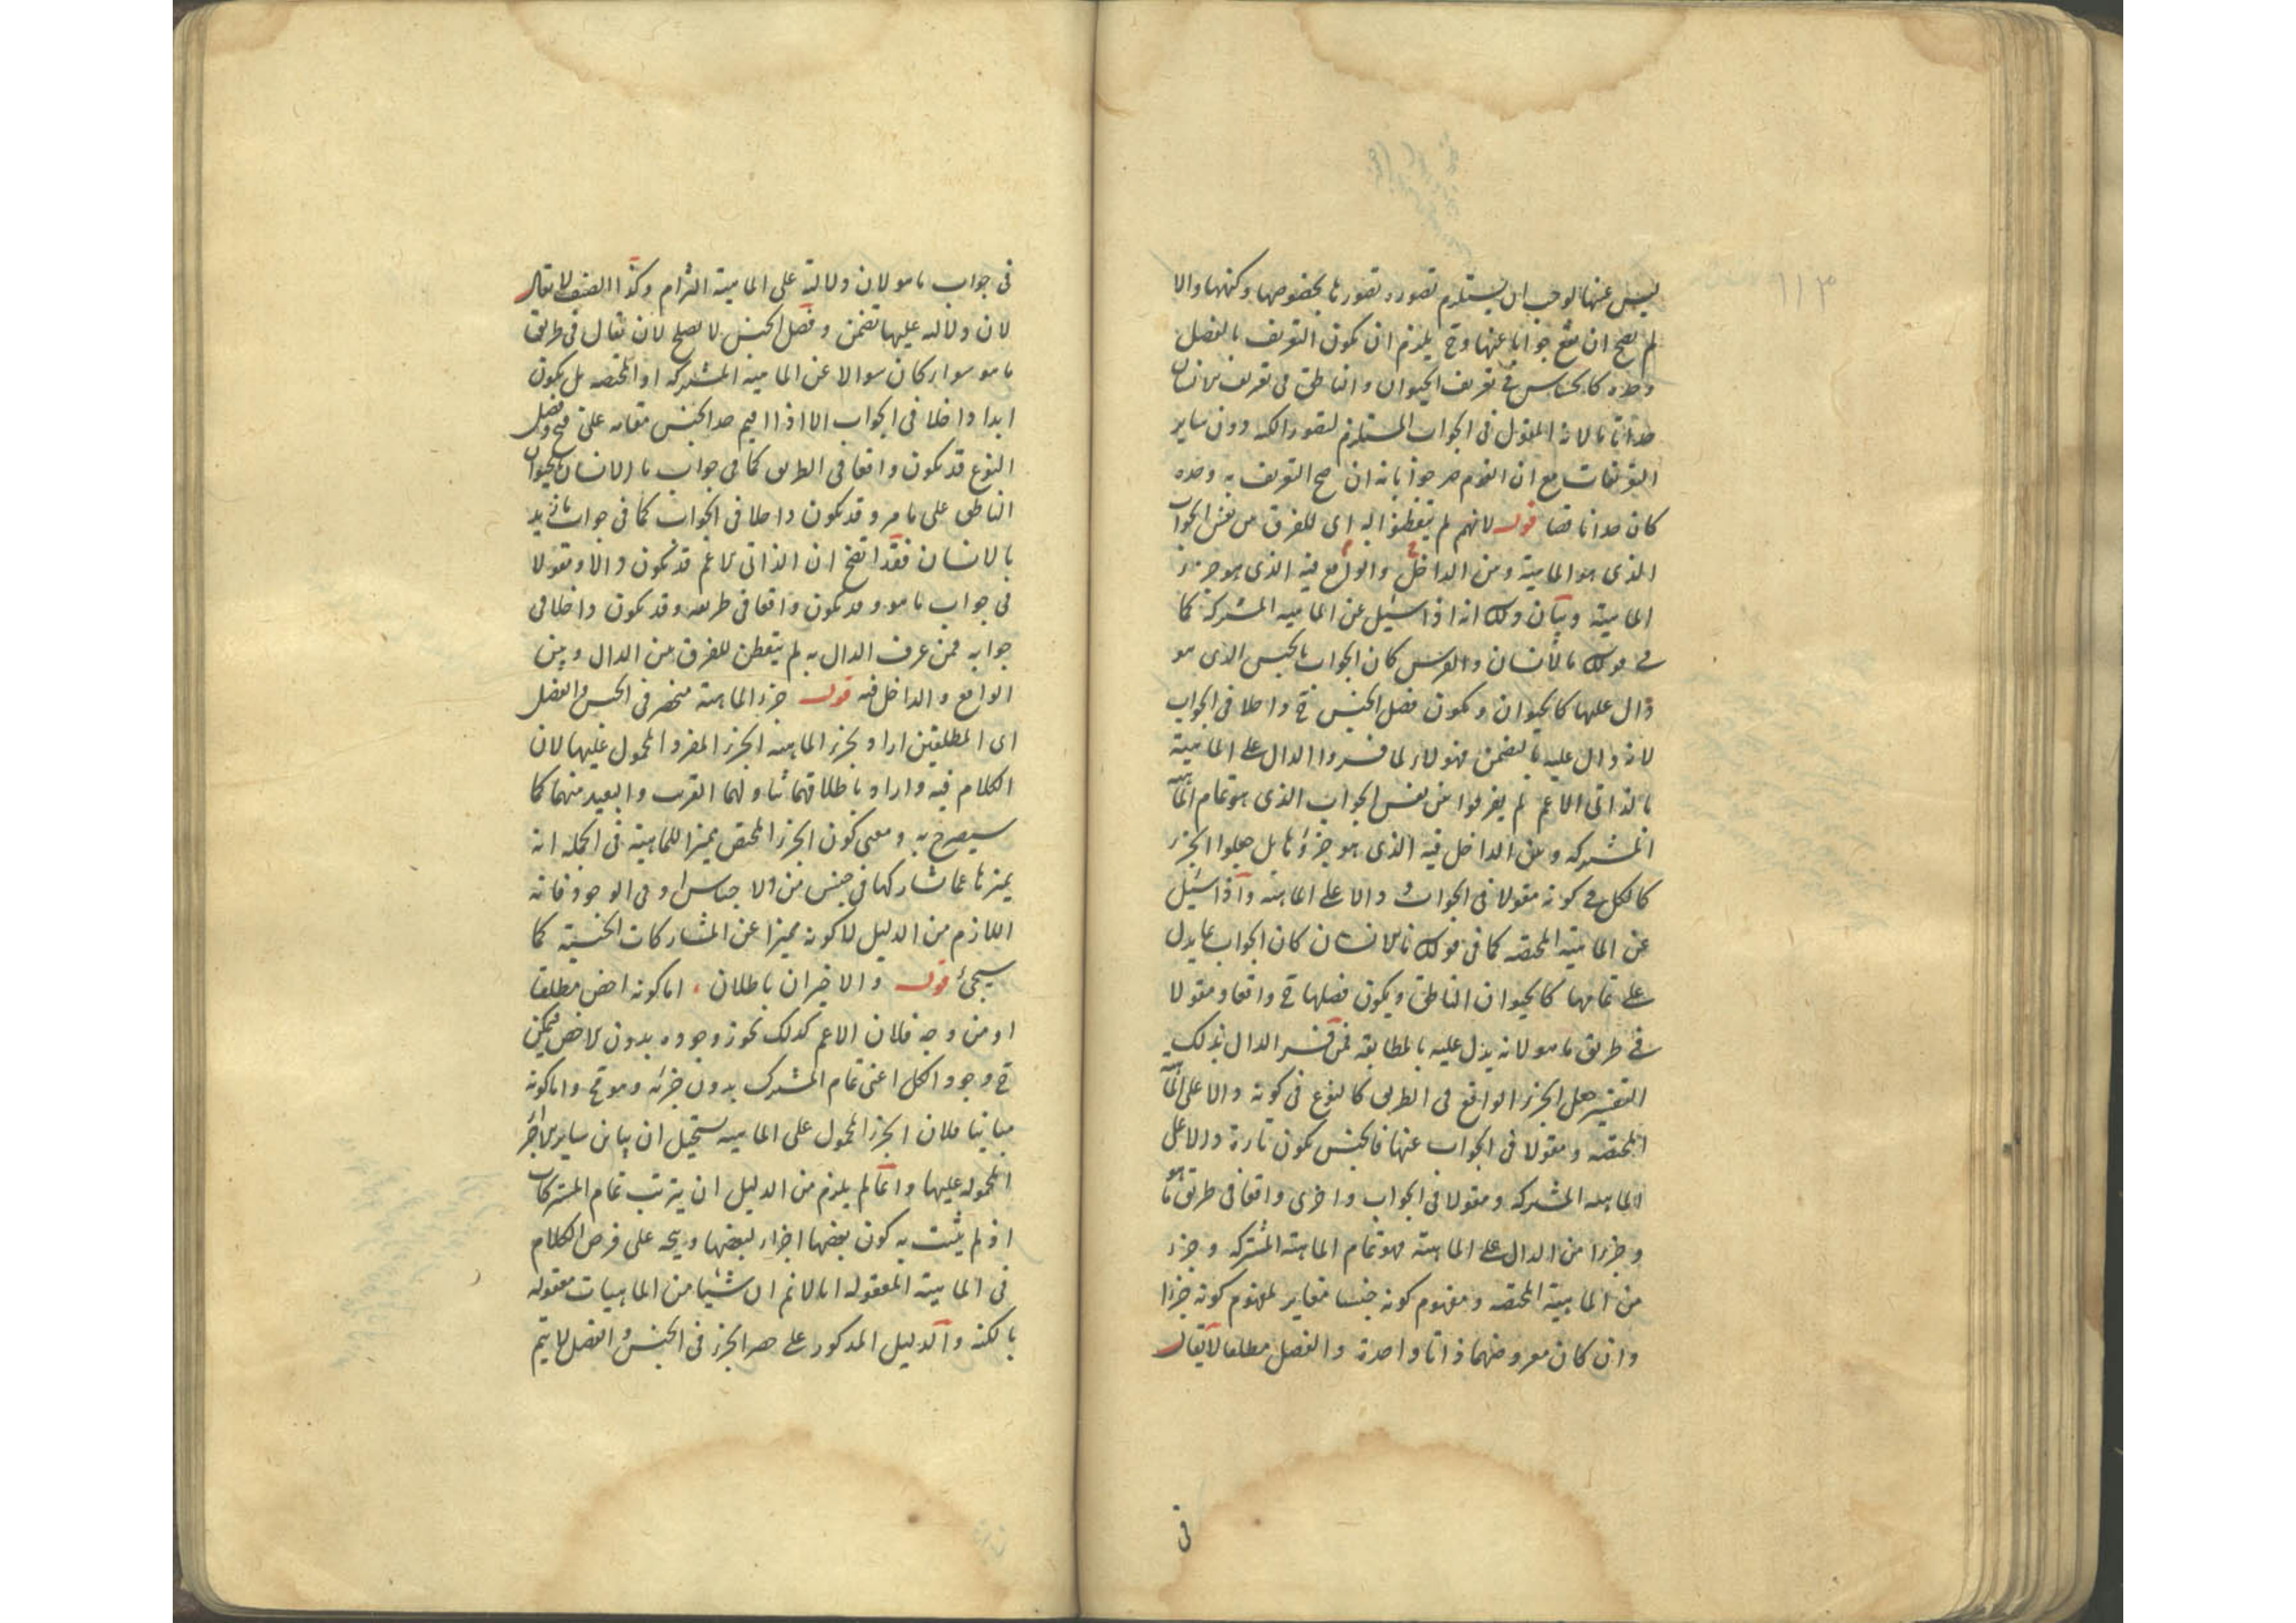 ليس عنها لوجب ان يستلزم تصوره تصورها بخصوصها وكنهها والا
لم يصح ان يقع جوابا عنها وح يلزم ان يكون التعريف بالفصل
وحده كالحساس في تعريف الحيوان والناطق في تعريف الانسان
حدا تاما لانه المقول في الجواب المستلزم لتصور الكنه دون ساير
التعريفات مع ان القوم صرحوا بانه ان صح التعريف به وحده
كان حدا ناقصا قوله لانهم لم يتفطنوا اليه اى للفرق من نفس الجواب
الذى هو الماهية ومن الداخل والواقع فيه الذى هو جزء
الماهية وبيان ذلك انه اذا سئل عن الماهيه المشتركة كما
في قولك ما الانسان والفرس كان الجواب بالجنس الذى هو
دال عليها كالحيوان ويكون فصل الجنس ح داخلا فى الجواب
لانه دال عليه بالتضمن فهولاء لما فسروا الدال على الماهية
بالذاتى الاعم لم يفرقوا من نفس الجواب الذى هو تمام الماهية
المشتركه ومن الداخل فيه الذى هو جزؤها بل جعلوا الجزء
كالكل في كونه مقولا فى الجواب ودالا على الماهية واذا سئل
عن الماهية المختصه كما فى قولك ما الانسان كان الجواب بما يدل
على تمامها كالحيوان الناطق ويكون فصلها ح واقعا ومقولا
في طريق ما هو لانه يدل عليه بالمطابقه فمن فسر الدال بذلك
التفسير جعل الجزء الواقع فى الطريق كالنوع فى كونه دالا على الماهية
المختصه ومقولا فى الجواب عنها فالجنس يكون تارة دالا على
الماهية المشتركه ومقولا فى الجواب واخرى واقعا فى طريق ما هو
وجزءا من الدال على الماهية فهو تمام الماهية المشتركه وجزء
من الماهية المختصه ومفهوم كونه جنسا مغاير لمفهوم كونه جزءا
وان كان معروضهما ذاتا واحدة والفصل مطلقا لا يقال
فى
فى جواب ما هو لان دلالته على الماهية التزام وكذا الصنف لا يقال
لان دلاله عليها تضمن وفصل الجنس لا يصلح لان يقال فى طريق
ما هو سواء كان سوالا عن الماهيه المشتركه او المختصه بل يكون
ابدا داخلا فى الجواب الا اذا اقيم حد الجنس مقامه على وفصل
النوع قد يكون واقعا فى الطريق كما فى جواب ما الانسان بالحيوان
الناطق على ما مر وقد يكون داخلا فى الجواب كما فى جواب ما زيد
بالانسان فقد اتضح ان الذاتى الاعم قد يكون دالا ومقولا
فى جواب ما هو وقد يكون واقعا فى طريقه وقد يكون داخلا فى
جوابه فمن عرف الدال به لم يتفطن للفرق من الدال وبين
الواقع والداخل فيه قوله جزء الماهية منحصر فى الجنس والفصل
اى المطلقين اراد بجزء الماهيه الجزء المفرد المحمول عليها لان
الكلام فيه واراد باطلاقهما تناولهما القريب والبعيد منهما كما
سيصرح به ومعنى كون الجزء المختص مميزا للماهية فى الجملة انه
يميزها عما شاركها فى جنس من الاجناس او فى الوجود فانه
اللازم من الدليل لا كونه مميزا عن المشاركات الجنسية كما
سيجئ قوله والاخيران باطلان اما كونه اخص مطلقا
او من وجه فلان الاعم كذلك يجوز وجوده بدون الاخص فيمكن
ح وجود الكل اعنى تمام المشترك بدون جزئه وهو مح واما كونه
مباينا فلان الجزء المحمول على الماهيه يستحيل ان يباين ساير الاجزاء
المحموله عليها وانما لم يلزم من الدليل ان يترتب تمام المشتركات
اذ لم يثبت به كون بعضها اجزاء لبعضها على فرض الكلام
فى الماهية المعقوله انا لا نم ان شيئا من الماهيات معقوله
بالكنه والدليل المذكور على حصر الجزء فى الجنس والفصل لا يتم